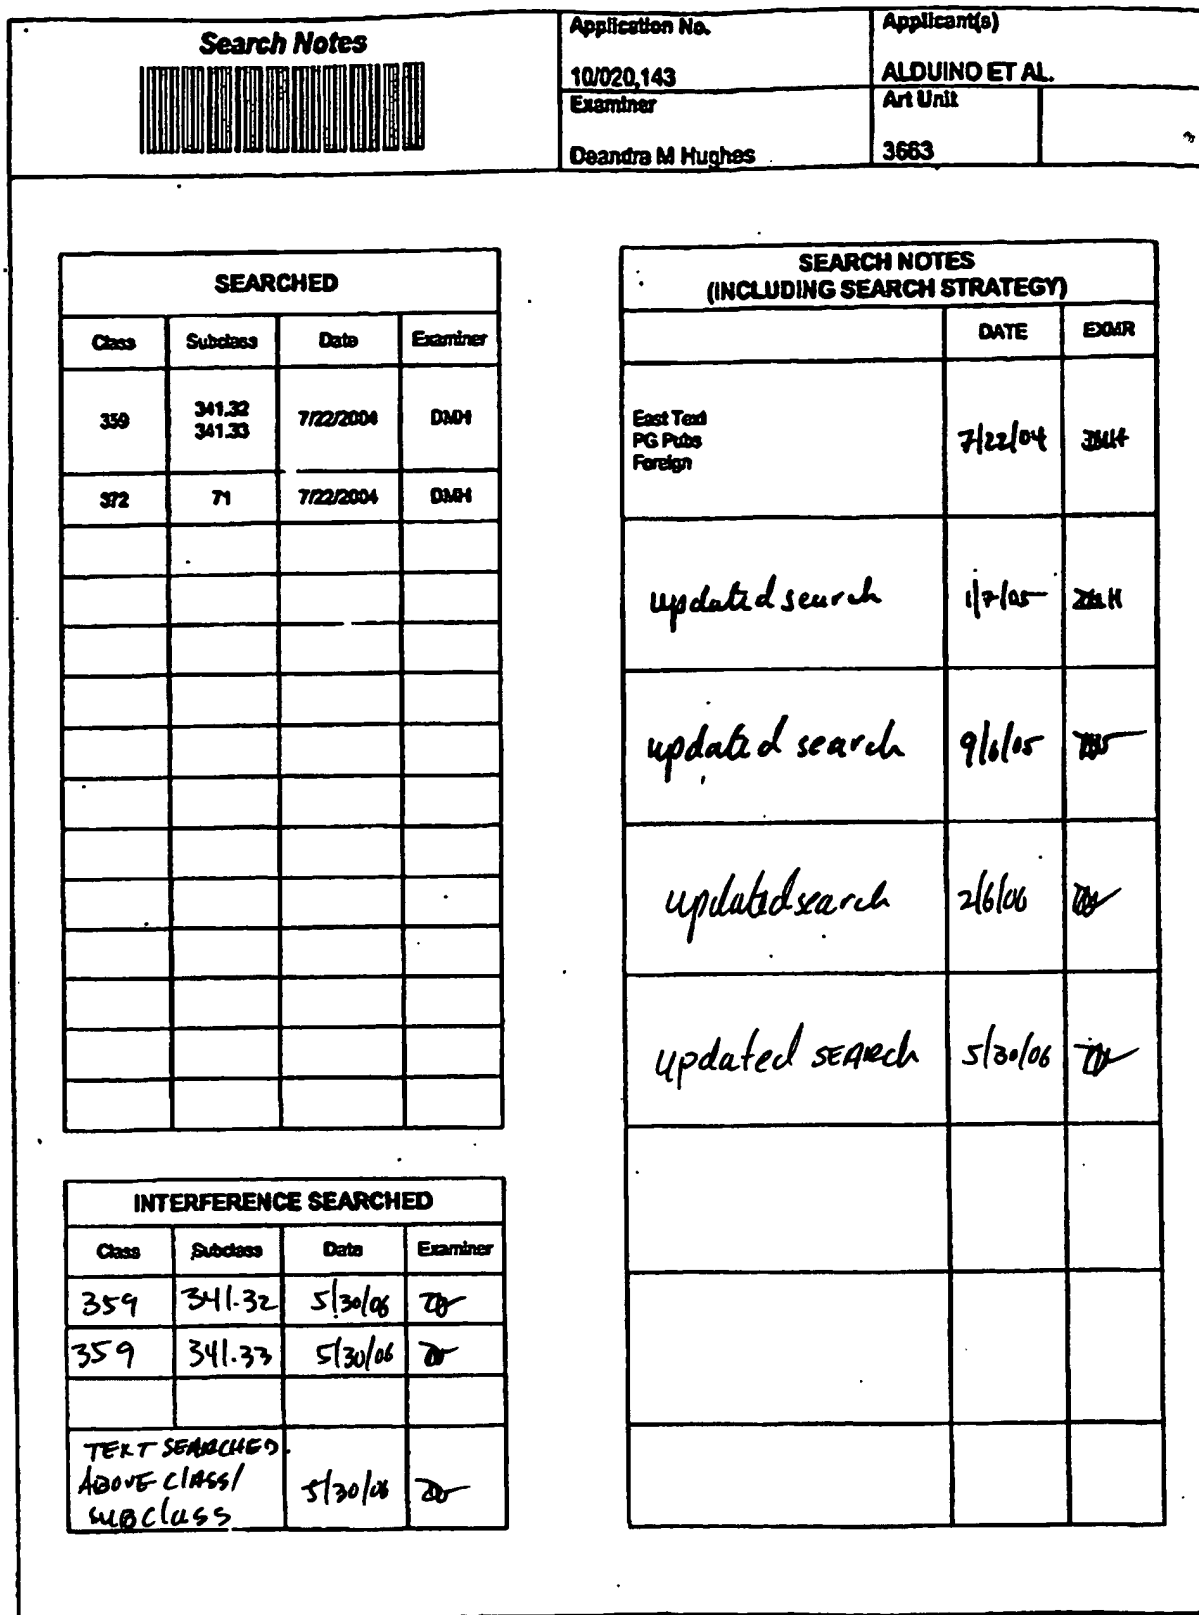 Search Notes
Application No.
Applicant(s)
10/020,143
ALDUINO ET AL.
Examiner
Art Unit
Deandra M Hughes
3663
SEARCHED
Class Subclass Date Examiner
359 341.32 341.33 7/22/2004 DMH
372 71 7/22/2004 DMH
INTERFERENCE SEARCHED
Class Subclass Date Examiner
359 341.32 5/30/06
359 341.33 5/30/06
TEXT SEARCHED
ABOVE Class/
SUBClass
5/30/06
SEARCH NOTES
(INCLUDING SEARCH STRATEGY)
DATE EXMR
East Text
PG Pubs
Foreign
7/22/04 DMH
updated search 1/7/05 DMH
updated search 9/6/05
updated search 2/6/06
updated SEARch 5/30/06